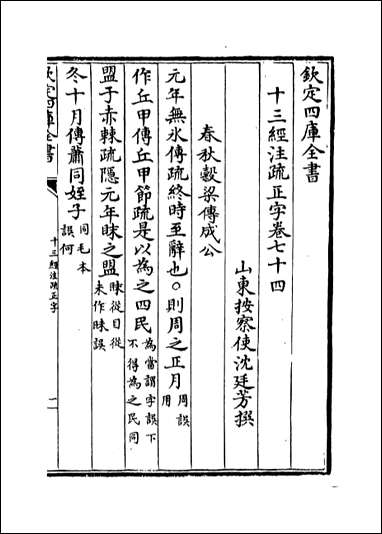 欽定四庫全書
十三經注疏正字卷七十四
山東按察使沈廷芳撰
春秋穀梁傳成公
元年無冰傳疏終時至辭也○則周之正月周誤用
作丘甲傳丘甲節疏是以為之四民為當謂字誤下不得為之民同
盟于赤棘疏隱元年眛之盟眛從日從未作昧誤
冬十月傳蕭同姪子同毛本誤何
欽定四庫全書
十三經注疏正字
一